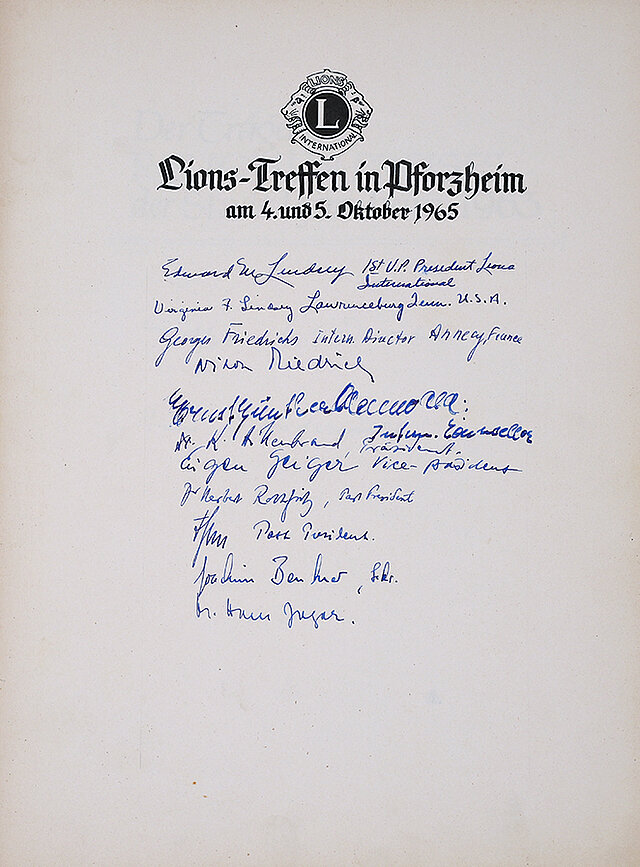 LIONS
L
INTERNATIONAL
Lions-Treffen in Pforzheim
am 4. und 5. Oktober 1965
Edward M. Lindsey 1st V.P. President Lions
International
Virginia F. Lindsey Lawrenceburg Tenn. U.S.A.
Georges Friedrichs Intern. Director Annecy, France
Ernst Günther
Dr. K. Hillenbrand, Intern. Counsellor
Präsident.
Eugen Geiger Vice-präsident
Dr Herbert, Past President
Past President.
Joachim
Dr. Hans